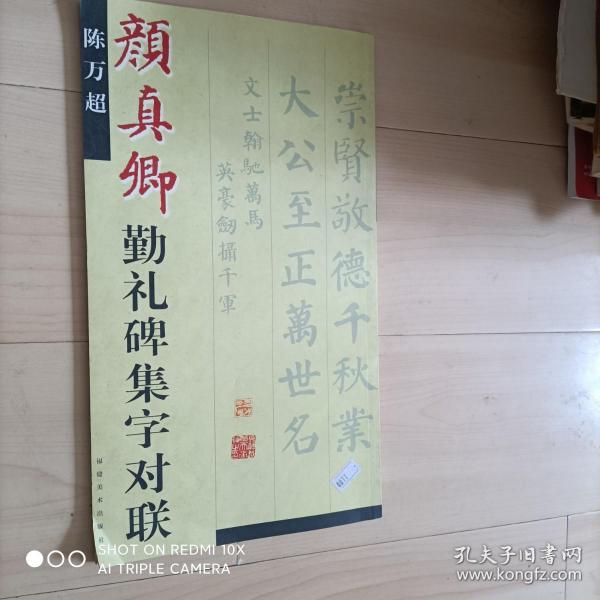 陈万超
顔真卿
勤礼碑集字对联
崇賢敬德千秋業
大公至正萬世名
文士翰馳萬馬
英豪劒攝千軍
福建美术出版社
SHOT ON REDMI 10X
AI TRIPLE CAMERA
孔夫子旧书网
www.kongfz.com